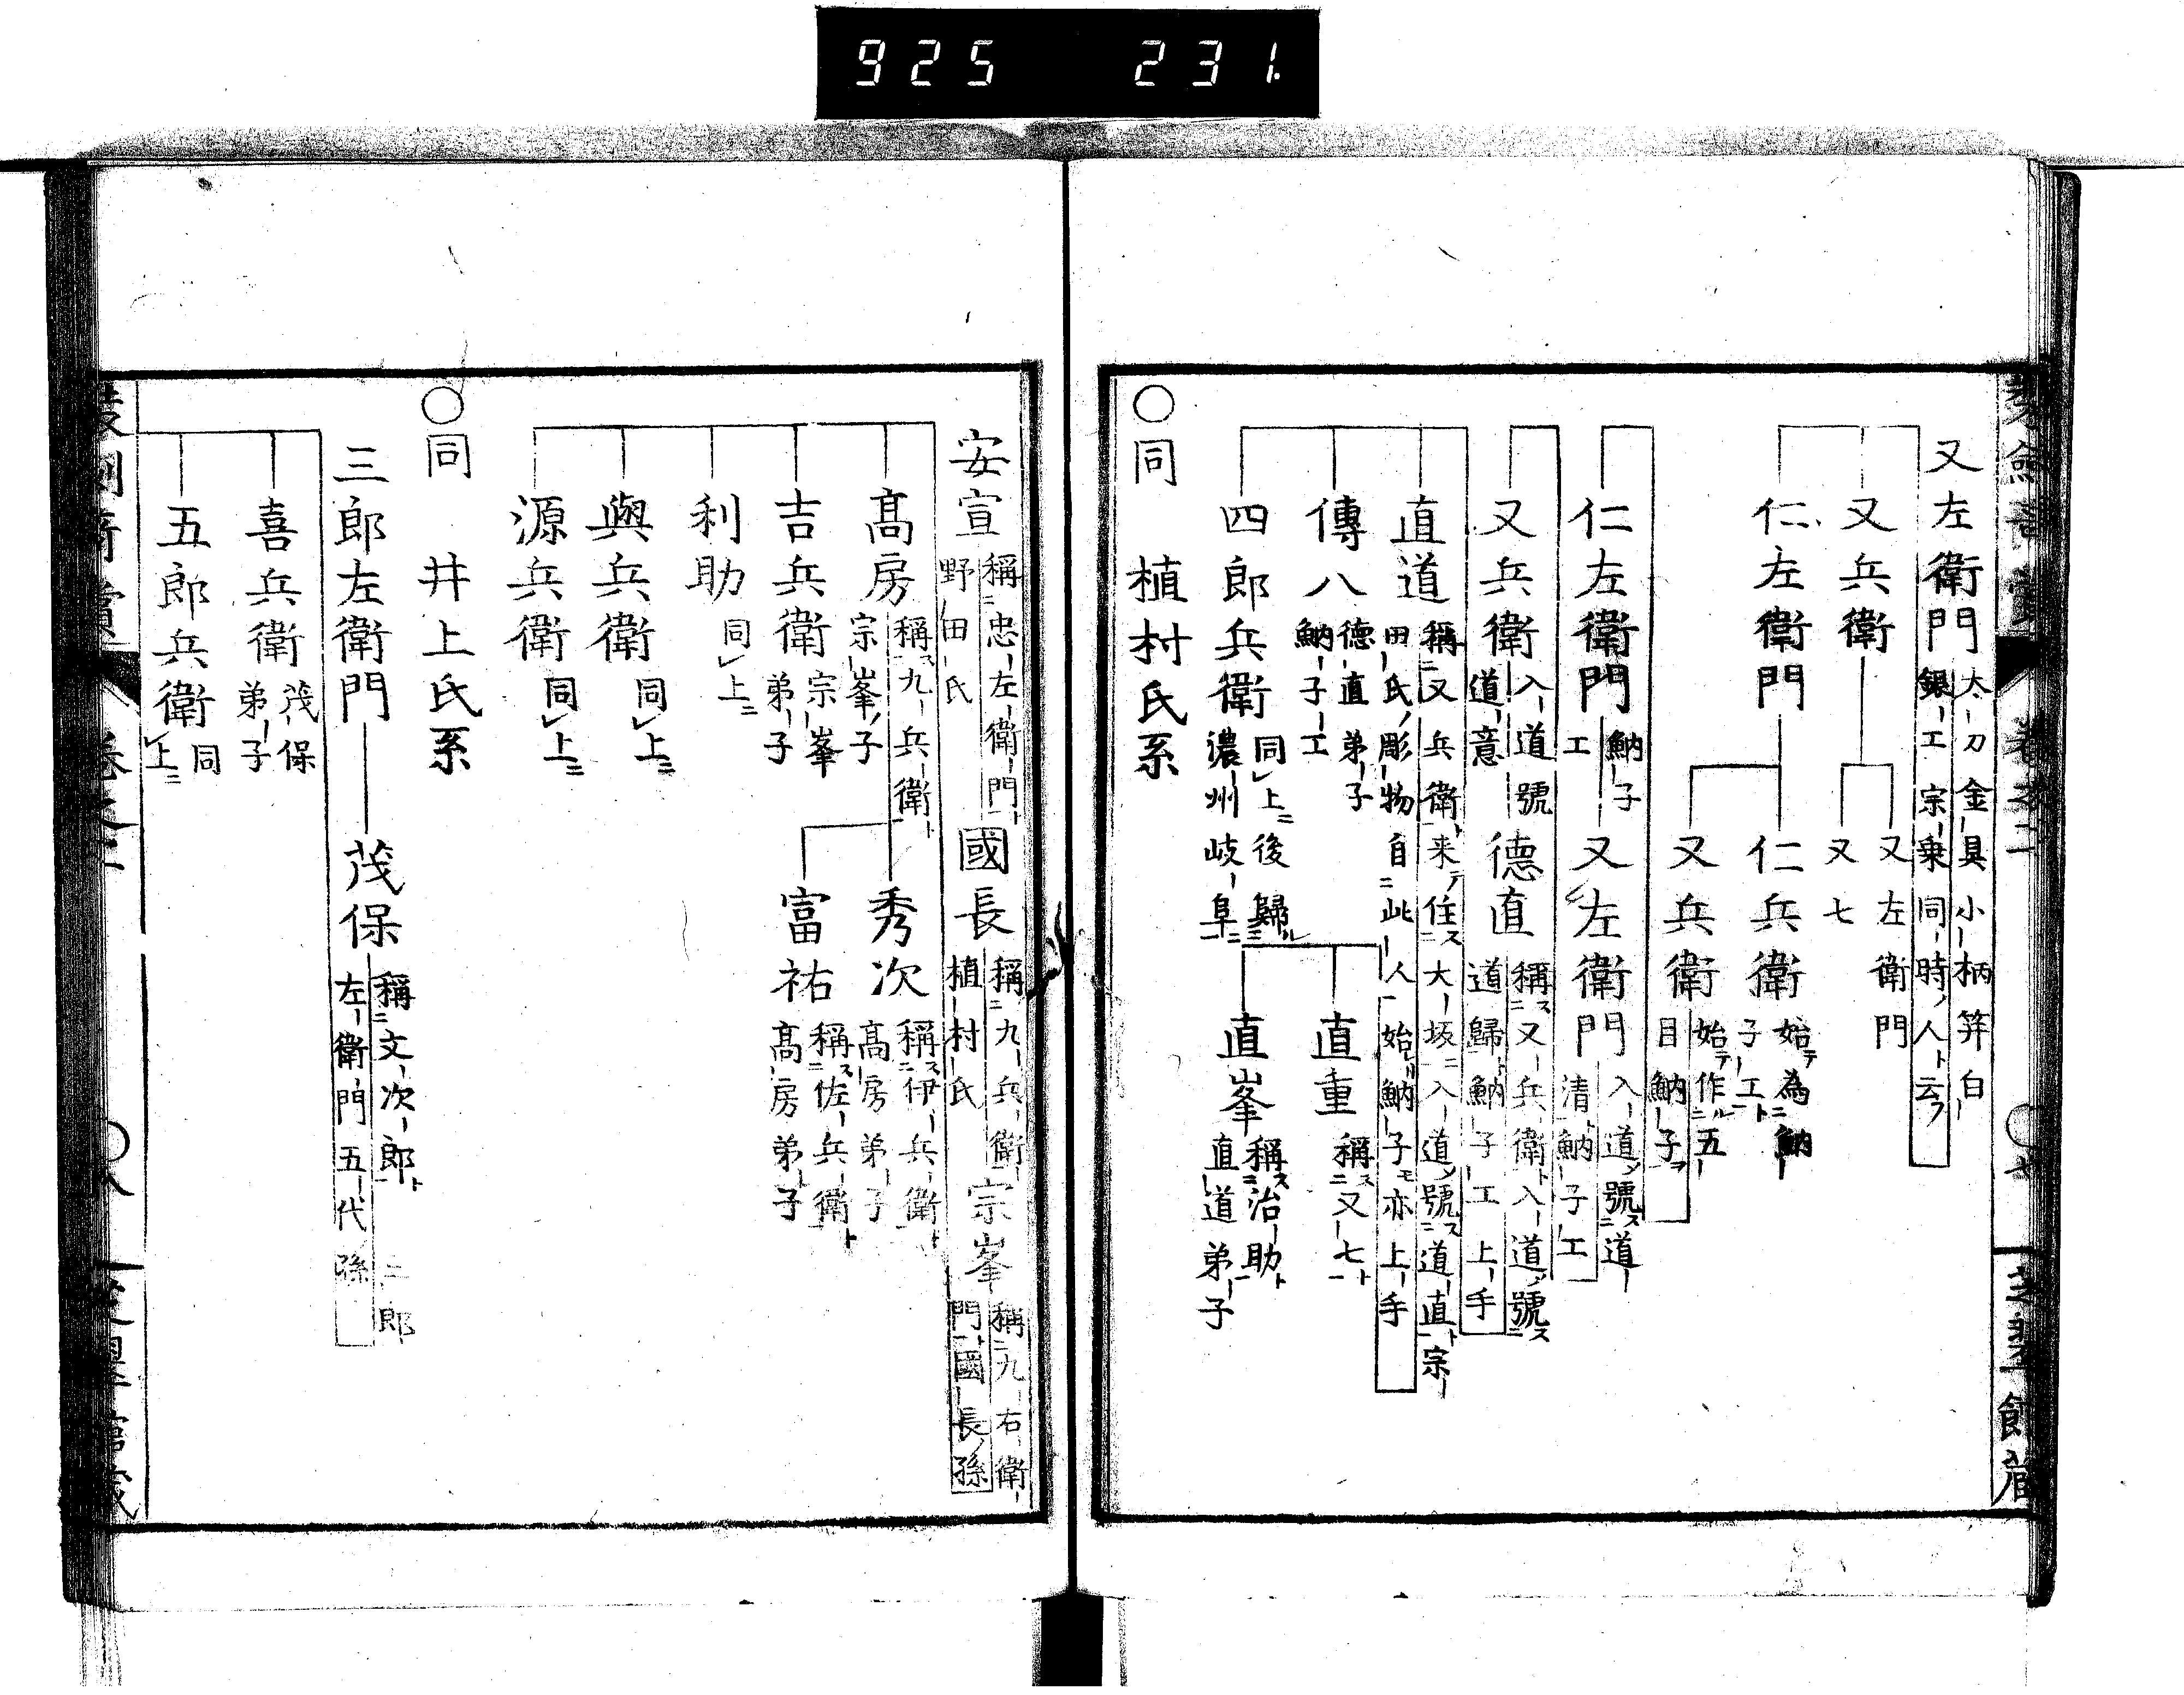 925 231
又左衛門 太刀金具小柄笄白
銀工宗乗同時ノ人ト云フ
又兵衛
又左衛門
又七
仁左衛門
仁兵衛 始テ為魶
子工ト
又兵衛 始テ作ル五
目魶子ヲ
仁左衛門 魶子
工
又左衛門 入道ノ號ス道
清ト魶子工
又兵衛 入道號
道意
德直 稱ス又兵衛ト入道ノ號ス
道歸ト魶子工上手
直道 稱又兵衛ト来テ住ス大坂ニ入道ノ號ス道直ト宗
田氏ノ彫物自此人始ル魶子モ亦上手
傳八 德直弟子
魶子工
四郎兵衛 同上ニ後歸ル
濃州岐阜ニ
直重 稱ス又七ト
直峯 稱ス治助ト
直道弟子
○同 植村氏系
安宣 稱忠左衛門ト
野田氏
國長 稱九兵衛ト
植村氏
宗峯 稱九右衛
門ト國長ノ孫
髙房 稱ス九兵衛ト
宗峯ノ子
秀次 稱ス伊兵衛ト
髙房弟子
富祐 稱ス佐兵衛ト
髙房弟子
吉兵衛 宗峯
弟子
利助 同上ニ
與兵衛 同上ニ
源兵衛 同上ニ
○同 井上氏系
三郎左衛門
茂保 稱文次郎ト三郎
左衛門五代孫
喜兵衛 茂保
弟子
五郎兵衛 同
上ニ